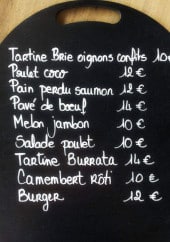 Tartine Brie oignons confits 10€
Poulet coco 12 €
Pain perdu saumon 12 €
Pavé de boeuf 14 €
Melon jambon 10 €
Salade poulet 10 €
Tartine Burrata 14 €
Camembert Rôti 10 €
Burger 12 €